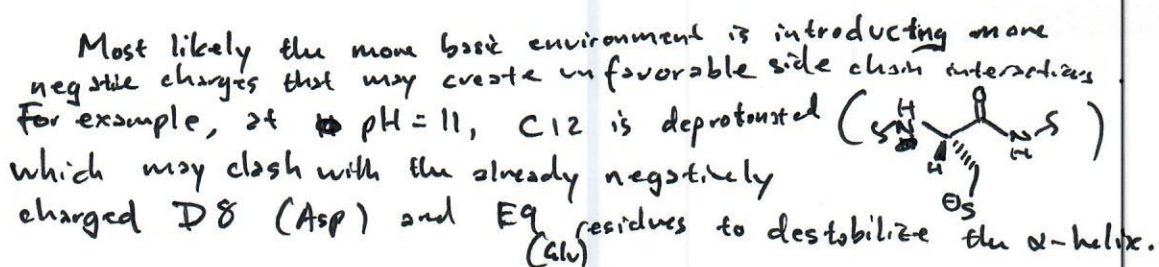 Most likely the more basic environment is introducing more
negative charges that may create unfavorable side chain interactions
For example, at pH = 11, C12 is deprotonated (
which may clash with the already negatively
charged D8 (Asp) and E9 (Glu) residues to destabilize the α-helix.
H
N
O
N
H
H
⊖S
)